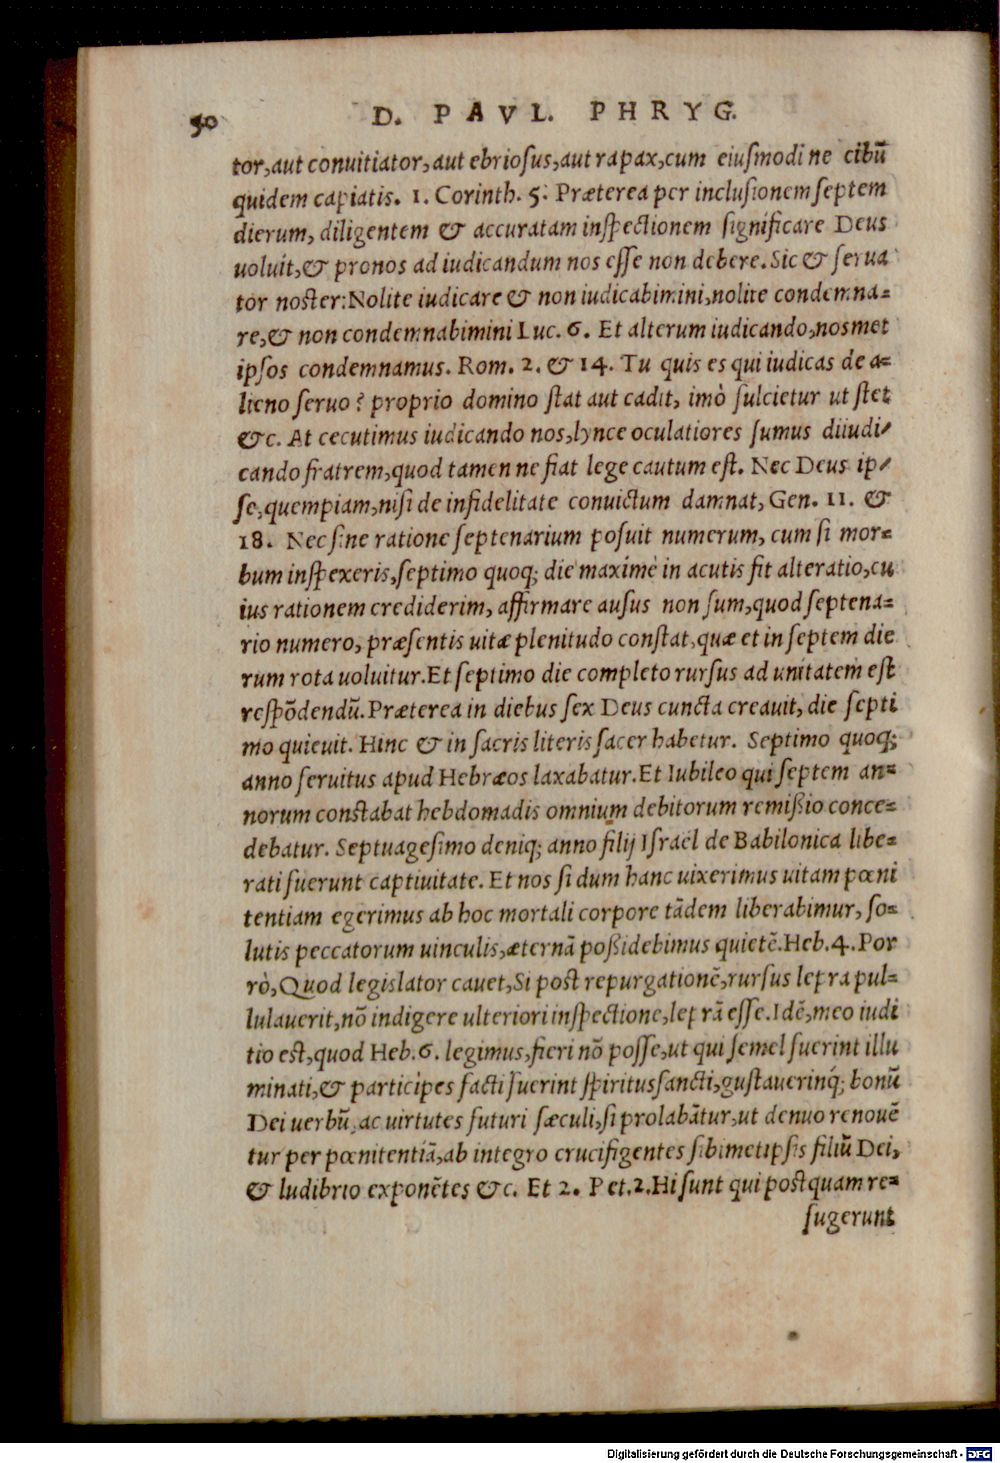 50 D. PAVL. PHRYG.
tor,aut conuitiator,aut ebriosus,aut rapax,cum eiusmodi ne cibũ
quidem capiatis. 1. Corinth. 5. Præterea per inclusionem septem
dierum, diligentem & accuratam inspectionem significare Deus
uoluit,& pronos ad iudicandum nos esse non debere. Sic & serua
tor noster:Nolite iudicare & non iudicabimini,nolite condemna=
re,& non condemnabimini Luc. 6. Et alterum iudicando,nosmet
ipsos condemnamus. Rom. 2. & 14. Tu quis es qui iudicas de a=
lieno seruo? proprio domino stat aut cadit, imò fulcietur ut stet
&c. At cecutimus iudicando nos,lynce oculatiores sumus diiudi=
cando fratrem,quod tamen ne fiat lege cautum est. Nec Deus ip=
se,quempiam,nisi de infidelitate conuictum damnat, Gen. 11. &
18. Nec sine ratione septenarium posuit numerum, cum si mor=
bum inspexeris,septimo quoq; die maximè in acutis fit alteratio,cu
ius rationem crediderim, affirmare ausus non sum,quod septena=
rio numero, præsentis uitæ plenitudo constat,quæ et in septem die
rum rota uoluitur.Et septimo die completo rursus ad unitatem est
respõdendũ.Præterea in diebus sex Deus cuncta creauit, die septi
mo quieuit. Hinc & in sacris literis sacer habetur. Septimo quoq;
anno seruitus apud Hebræos laxabatur.Et Iubileo qui septem an=
norum constabat hebdomadis omnium debitorum remißio conce=
debatur. Septuagesimo deniq; anno filij Israël de Babilonica libe=
rati fuerunt captiuitate. Et nos si dum hanc uixerimus uitam pœni
tentiam egerimus ab hoc mortali corpore tãdem liberabimur, so=
lutis peccatorum uinculis,æternã poßidebimus quietẽ.Heb.4.Por
rò,Quod legislator cauet,Si post repurgationẽ,rursus lepra pul=
lulauerit,nõ indigere ulteriori inspectione,leprã esse.Idẽ,meo iudi
tio est,quod Heb.6. legimus,fieri nõ posse,ut qui semel fuerint illu
minati,& participes facti fuerint spiritus sancti,gustauerinq́; bonũ
Dei uerbũ,ac uirtutes futuri sæculi,si prolabãtur,ut denuo renouẽ
tur per pœnitentiã,ab integro crucifigentes sibimetipsis filiũ Dei,
& ludibrio exponẽtes &c. Et 2. Pet.2.Hi sunt qui postquam re=
fugerunt
Digitalisierung gefördert durch die Deutsche Forschungsgemeinschaft - DFG